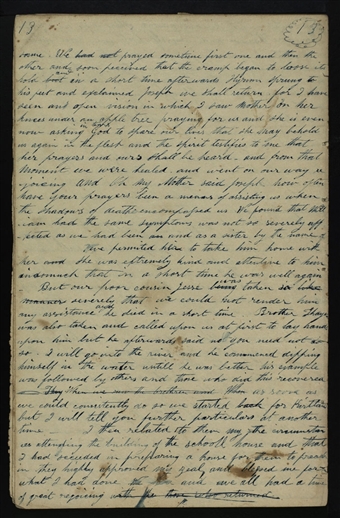 13
same. We had not prayed sometime first one and then the
other and soon perceived that the cramp began to loose it
hold but in a short time afterwards Hyrum sprung to
his feet and exclaimed Joseph we shall return for I have
seen and open vision in which I saw mother on her
knees under an apple tree praying for us and she is even
now asking God to spare our lives that she may behold
us again in the flesh and the spirit testifies to me that
her prayers and ours shall be heard. and from that
moment we were healed and went on our way re
joicing and Oh my Mother said Joseph how often
have your prayers been a means of assisting us when
the shadows of death encompassed us We found that Will
iam had the same symptoms was not so severely aff
ected as we had been and as a sister by the name of
permitted her to take him home with
her and she was extremely kind and attentive to him
inasmuch that in a short time he was well again
But our poor cousin Jesse was taken
severely that we could not render him
any assistance and he died in a short time Brother Thayre
was also taken and called upon us at first to lay hands
upon him but he afterwards said no you need not do
so. I will go into the river and he commenced dipping
himself in the water untill he was better his example
was followed by others and those who did this recovered
as soon as
we could conveniently do so we started back for Kirtland
but I will tell you further particulars at another
time I then related to them my circumstances
in attending the building of the school house and that
I had succeeded in preparing a house for them to preach
in They highly approved my zeal and blessed me for
what I had done and we all had a time
of great rejoicing